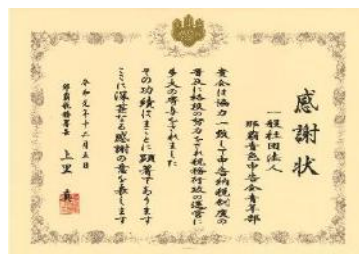 感謝状
一般社団法人
那覇青色申告会青年部
貴会は協力一致して申告納税制度の
普及に格段の努力をされ税務行政の運営に
多大の寄与をされました
その功績はまことに顕著であります
ここに深甚なる感謝の意を表します
令和元年十二月五日
那覇税務署長 上里